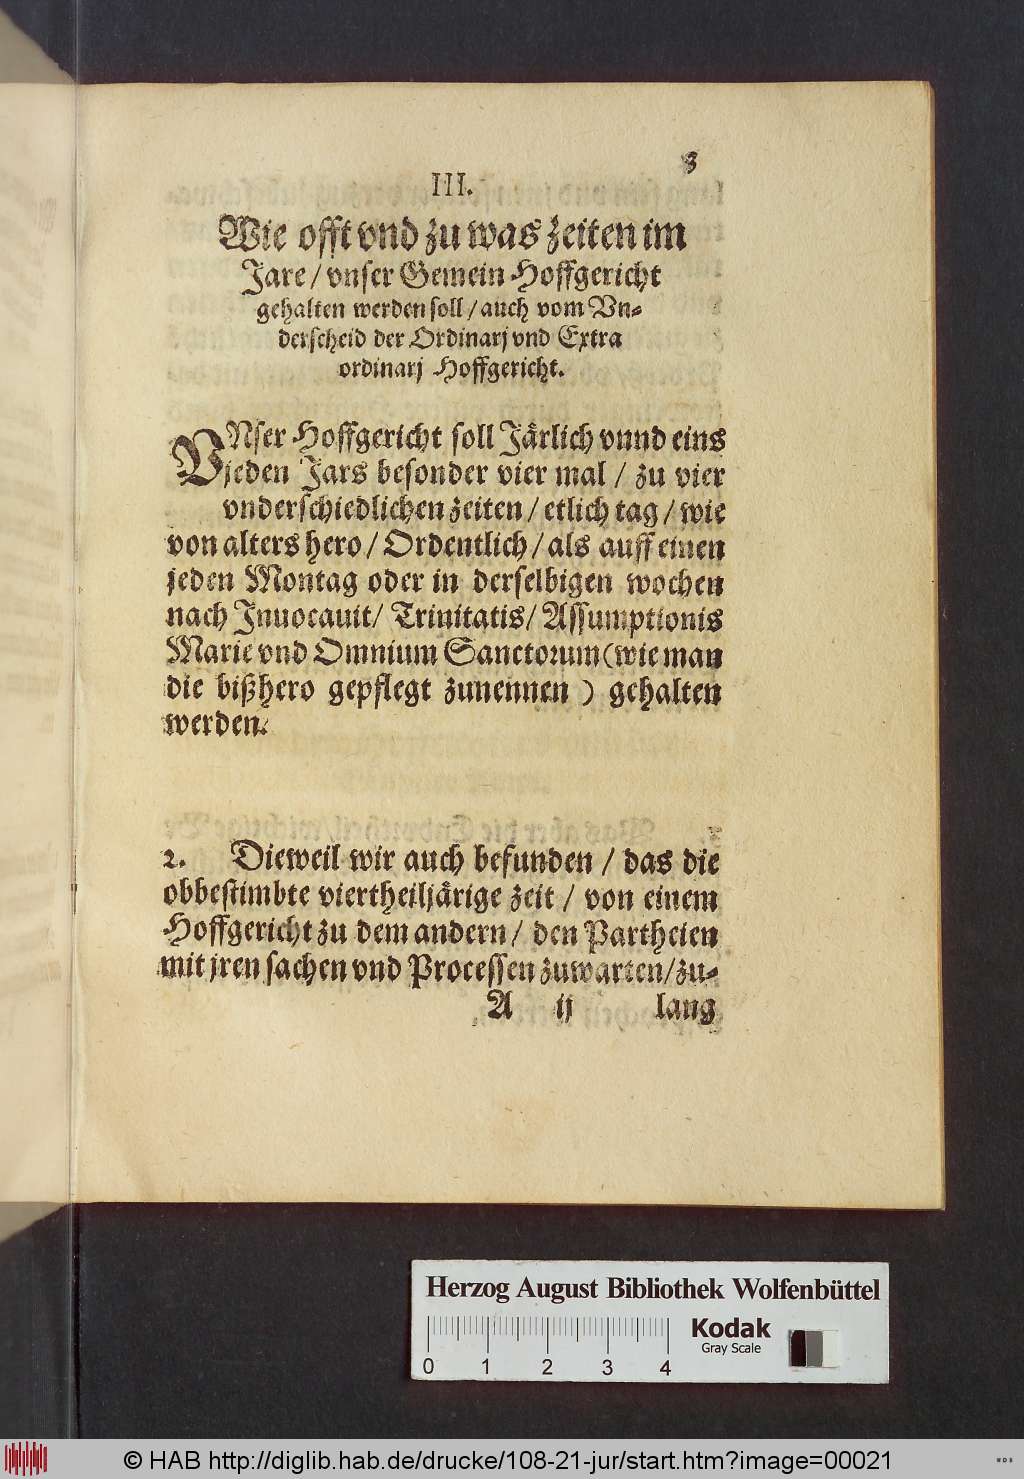 3
III.
Wie offt vnd zu was zeiten im
Jare / vnser Gemein Hoffgericht
gehalten werden soll / auch vom Vn-
derscheid der Ordinarj vnd Extra
ordinarj Hoffgericht.
VNser Hoffgericht soll Järlich vnnd eins
jeden Jars besonder vier mal / zu vier
vnderschiedlichen zeiten / etlich tag / wie
von alters hero / Ordentlich / als auff einen
jeden Montag oder in derselbigen wochen
nach Inuocauit / Trinitatis / Assumptionis
Marie vnd Omnium Sanctorum (wie man
die bißhero gepflegt zunennen ) gehalten
werden.
2. Dieweil wir auch befunden / das die
obbestimbte viertheiljärige zeit / von einem
Hoffgericht zu dem andern / den Partheien
mit jren sachen vnd Processen zuwarten / zu-
A ij lang
Herzog August Bibliothek Wolfenbüttel
Kodak
Gray Scale
0 1 2 3 4
© HAB http://diglib.hab.de/drucke/108-21-jur/start.htm?image=00021